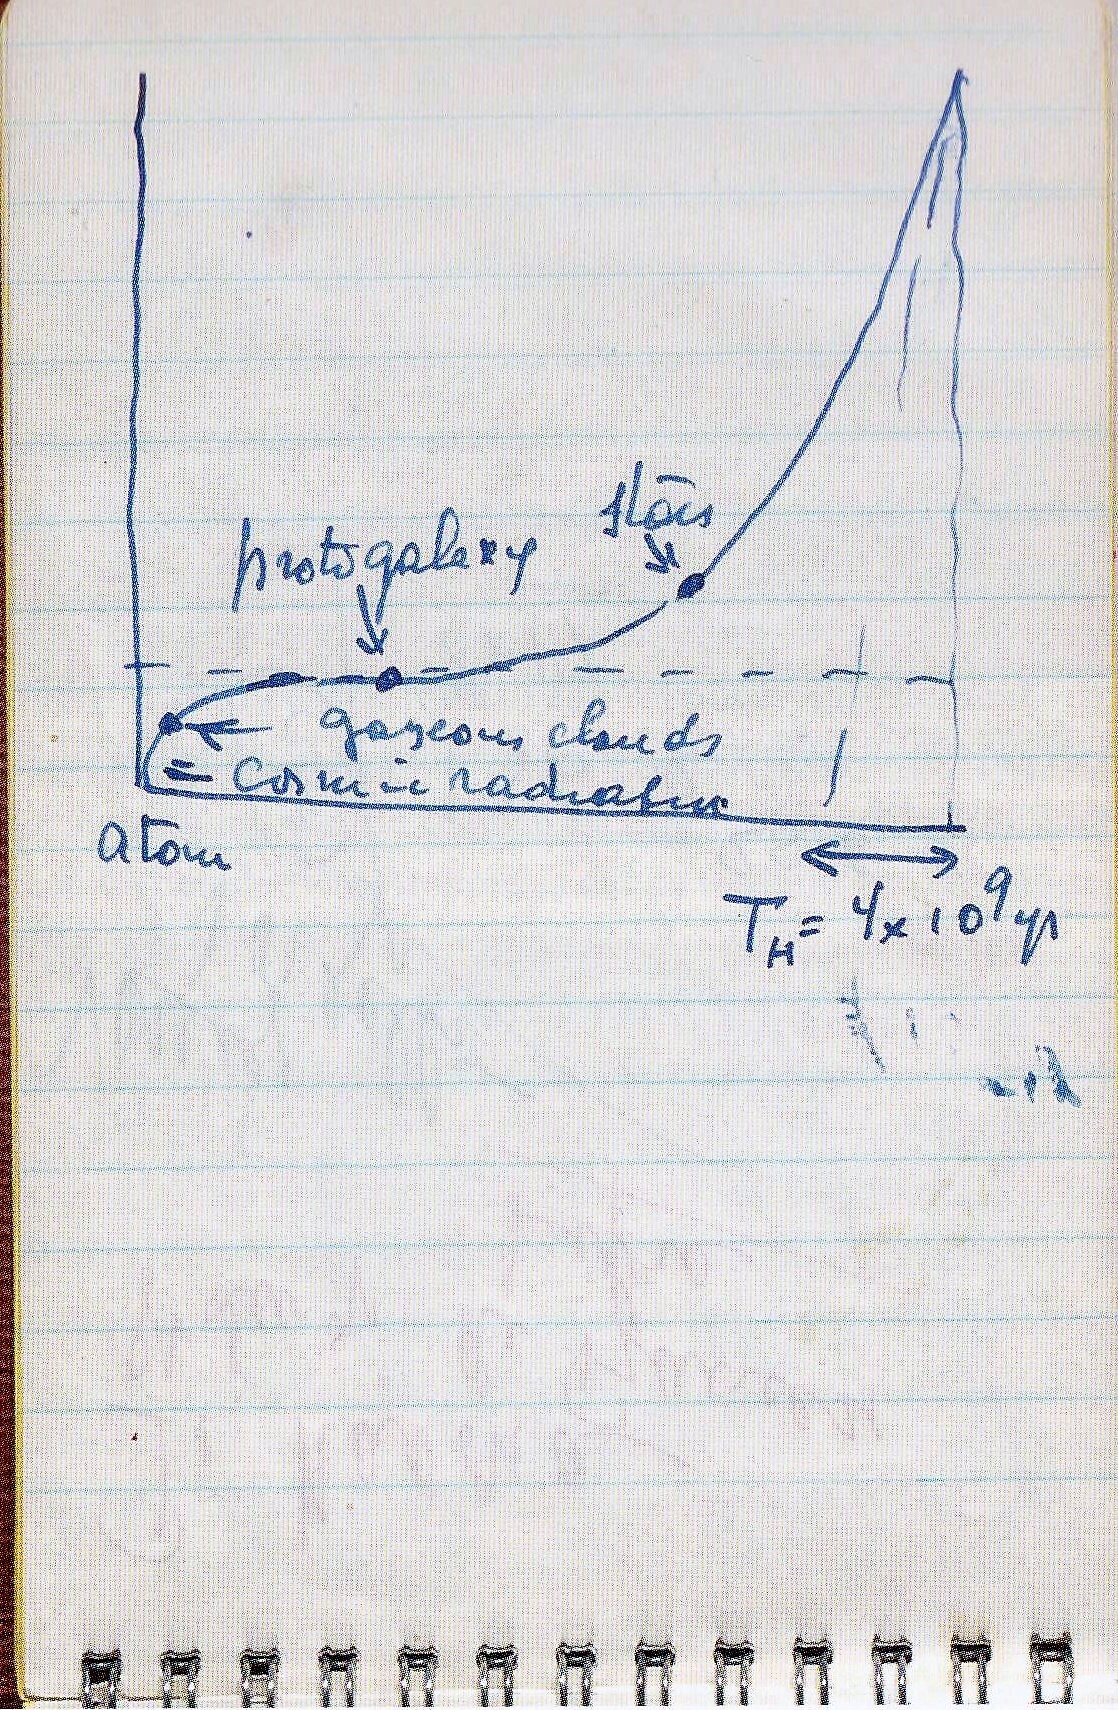 stars
protogalaxy
gazeous clouds
= cosmic radiation
atom
T_H = 4 x 10^9 yr